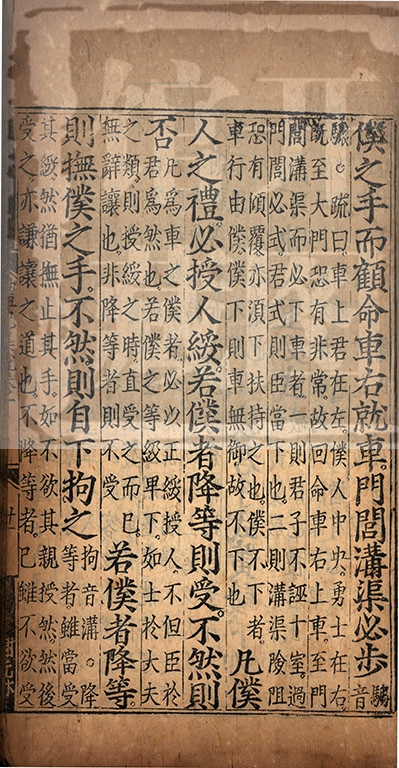 僕之手而顧命車右就車。門閭溝渠必步騶音
驟。○疏曰。車上君在左。僕人中央。勇士在右。
既至大門。恐有非常。故回命車右上車。至門
閭溝渠而必下車者。一則君子不誣十室。過
門閭必式。君式則臣當下也。二則溝渠險阻。
恐有傾覆。亦須下扶持之也。僕不下者。
車行由僕。僕下則車無御。故不下也
凡僕
人之禮。必授人綏。若僕者降等則受。不然則
否
凡為車之僕者。必以正綏授人。不但臣於
君為然也。若僕之等級卑下。如士於大夫
之類。則授綏之時。直受之而已。
無辭讓也。非降等者則不受
若僕者降等。
則撫僕之手。不然則自下拘之
拘音溝。○降
等者。雖當受
其綏。然猶撫止其手。如不欲其親授然。然後
受之。亦謙讓之道也。不降等者。已雖不欲受